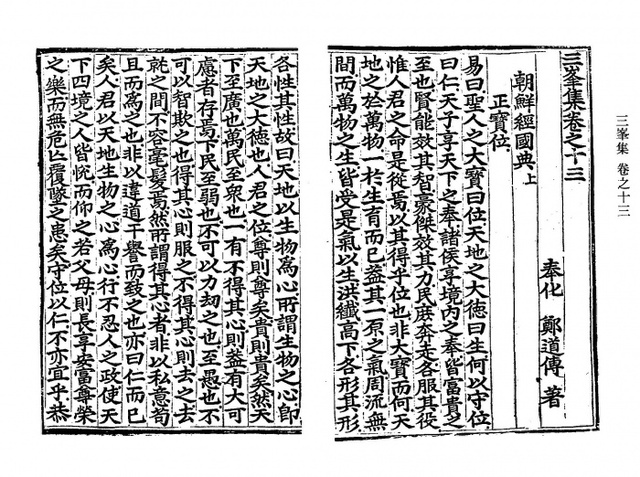 三峯集 卷之十三
三峯集卷之十三
奉化 鄭道傳 著
朝鮮經國典上
正寶位
易曰聖人之大寶曰位天地之大德曰生何以守位
曰仁天子享天下之奉諸侯享境內之奉皆富貴之
至也賢能效其智豪傑效其力民庶奔走各服其役
惟人君之命是從焉以其得乎位也非大寶而何天
地之於萬物一於生育而已蓋其一原之氣周流無
間而萬物之生皆受是氣以生洪纖高下各形其形
各性其性故曰天地以生物爲心所謂生物之心卽
天地之大德也人君之位尊則尊矣貴則貴矣然天
下至廣也萬民至衆也一有不得其心則蓋有大可
慮者存焉下民至弱也不可以力劫之也至愚也不
可以智欺之也得其心則服之不得其心則去之去
就之間不容毫髮焉然所謂得其心者非以私意苟
且而爲之也非以違道干譽而致之也亦曰仁而已
矣人君以天地生物之心爲心行不忍人之政使天
下四境之人皆悅而仰之若父母則長享安富尊榮
之樂而無危亡覆墜之患矣守位以仁不亦宜乎恭